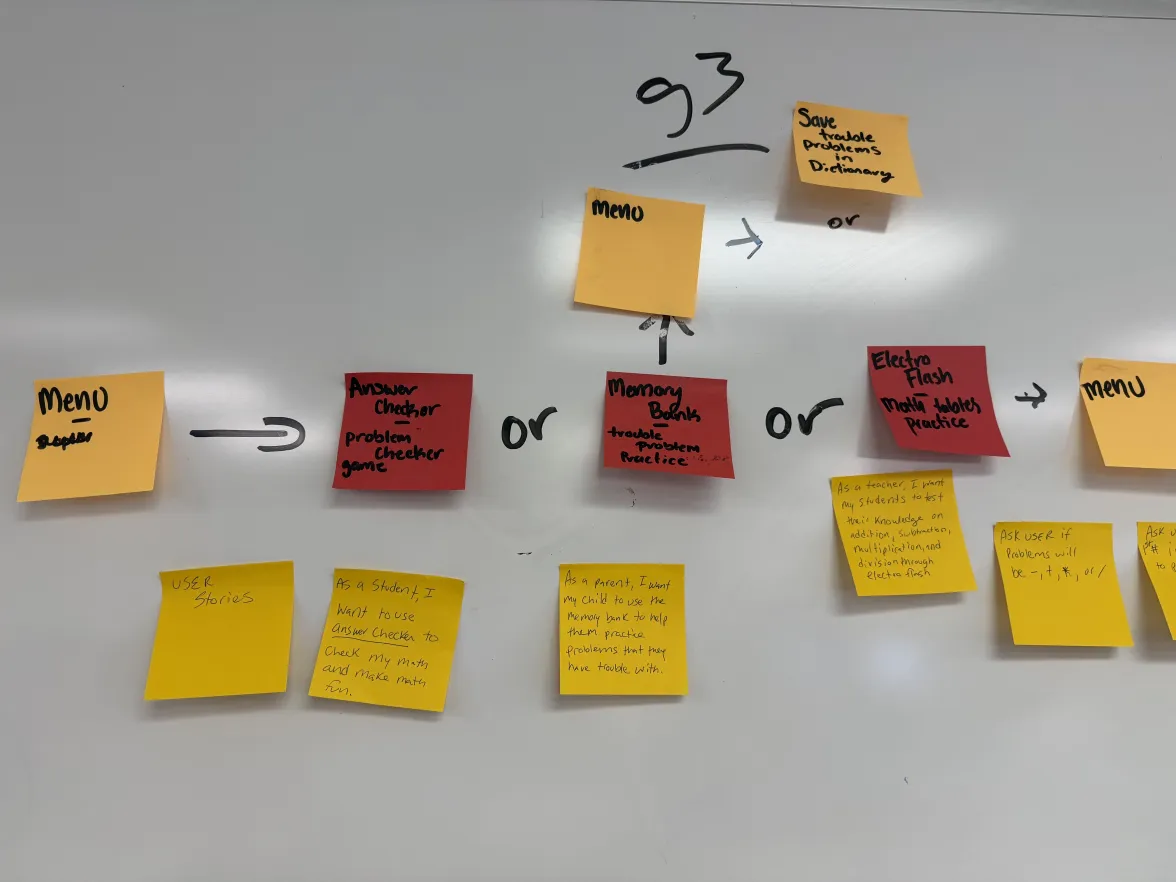 g3
Save
trouble
problems
in
Dictionary
or
Menu
Menu
Answer
Checker
problem
checker
game
or
Memory
Bank
trouble
problem
Practice
or
Electro
Flash
Math tables
practice
Menu
USER
Stories
As a Student, I
Want to use
Answer Checker to
Check my math
and make math
fun.
As a parent, I want
my child to use the
Memory bank to help
them practice
problems that they
have trouble with.
As a teacher, I want
my students to test
their knowledge on
addition, subtraction,
multiplication, and
division through
electro flash
ASK USER if
Problems will
be -, +, *, or /
ASK
to